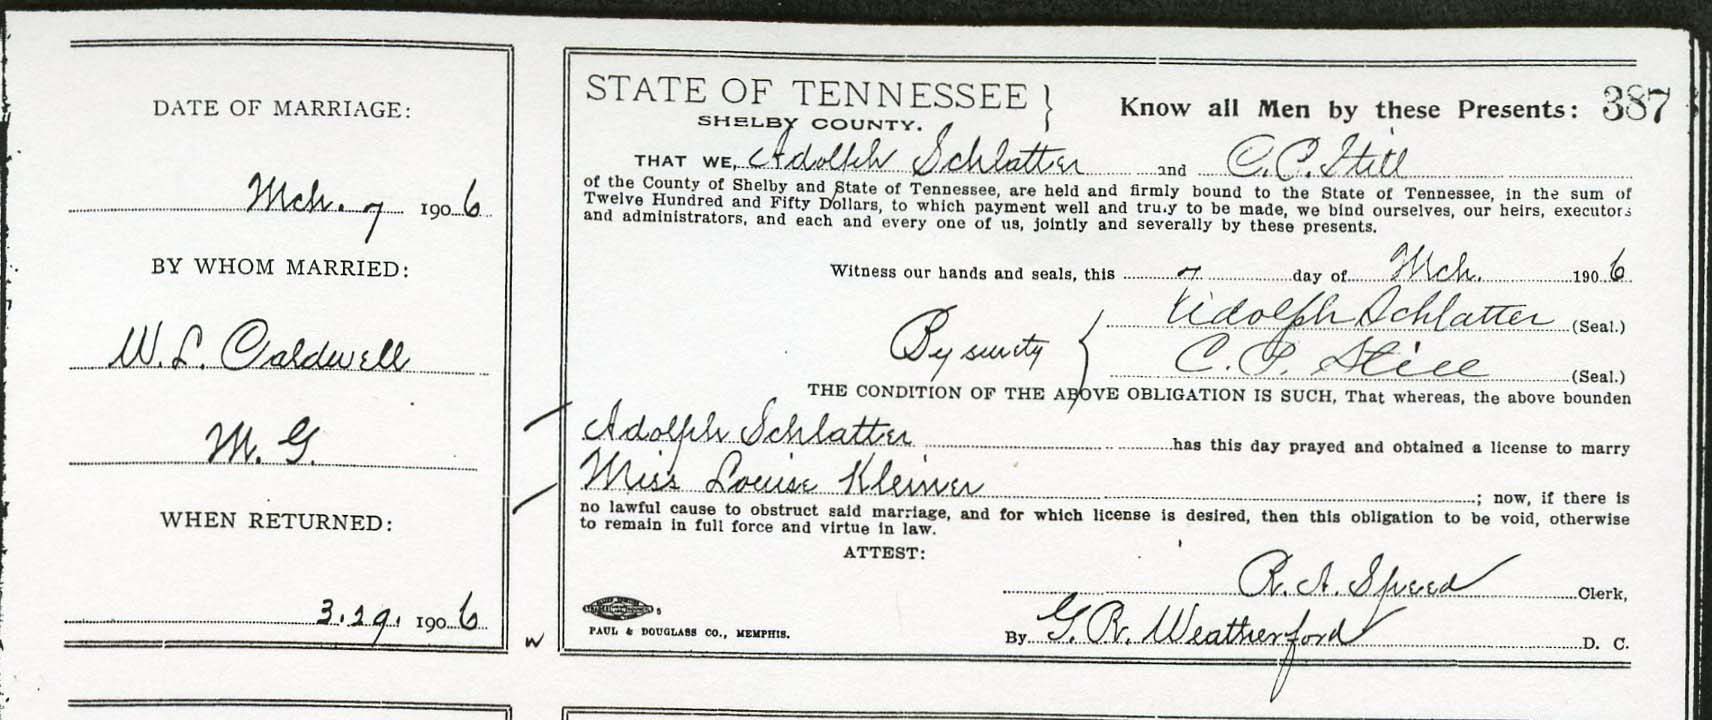 DATE OF MARRIAGE:
Mch. 7 1906
BY WHOM MARRIED:
W. L. Caldwell
M. G.
WHEN RETURNED:
3.29. 1906
STATE OF TENNESSEE }
SHELBY COUNTY.
Know all Men by these Presents: 387
THAT WE, Adolph Schlatter and C. P. Still
of the County of Shelby and State of Tennessee, are held and firmly bound to the State of Tennessee, in the sum of
Twelve Hundred and Fifty Dollars, to which payment well and truly to be made, we bind ourselves, our heirs, executors
and administrators, and each and every one of us, jointly and severally by these presents.
Witness our hands and seals, this 7 day of Mch. 1906
Adolph Schlatter (Seal.)
By surety {
C. P. Still (Seal.)
THE CONDITION OF THE ABOVE OBLIGATION IS SUCH, That whereas, the above bounden
Adolph Schlatter has this day prayed and obtained a license to marry
Miss Louise Kleiner ; now, if there is
no lawful cause to obstruct said marriage, and for which license is desired, then this obligation to be void, otherwise
to remain in full force and virtue in law.
ATTEST:
R. A. Speed Clerk,
PAUL & DOUGLASS CO., MEMPHIS.
By G. R. Weatherford D. C.
W